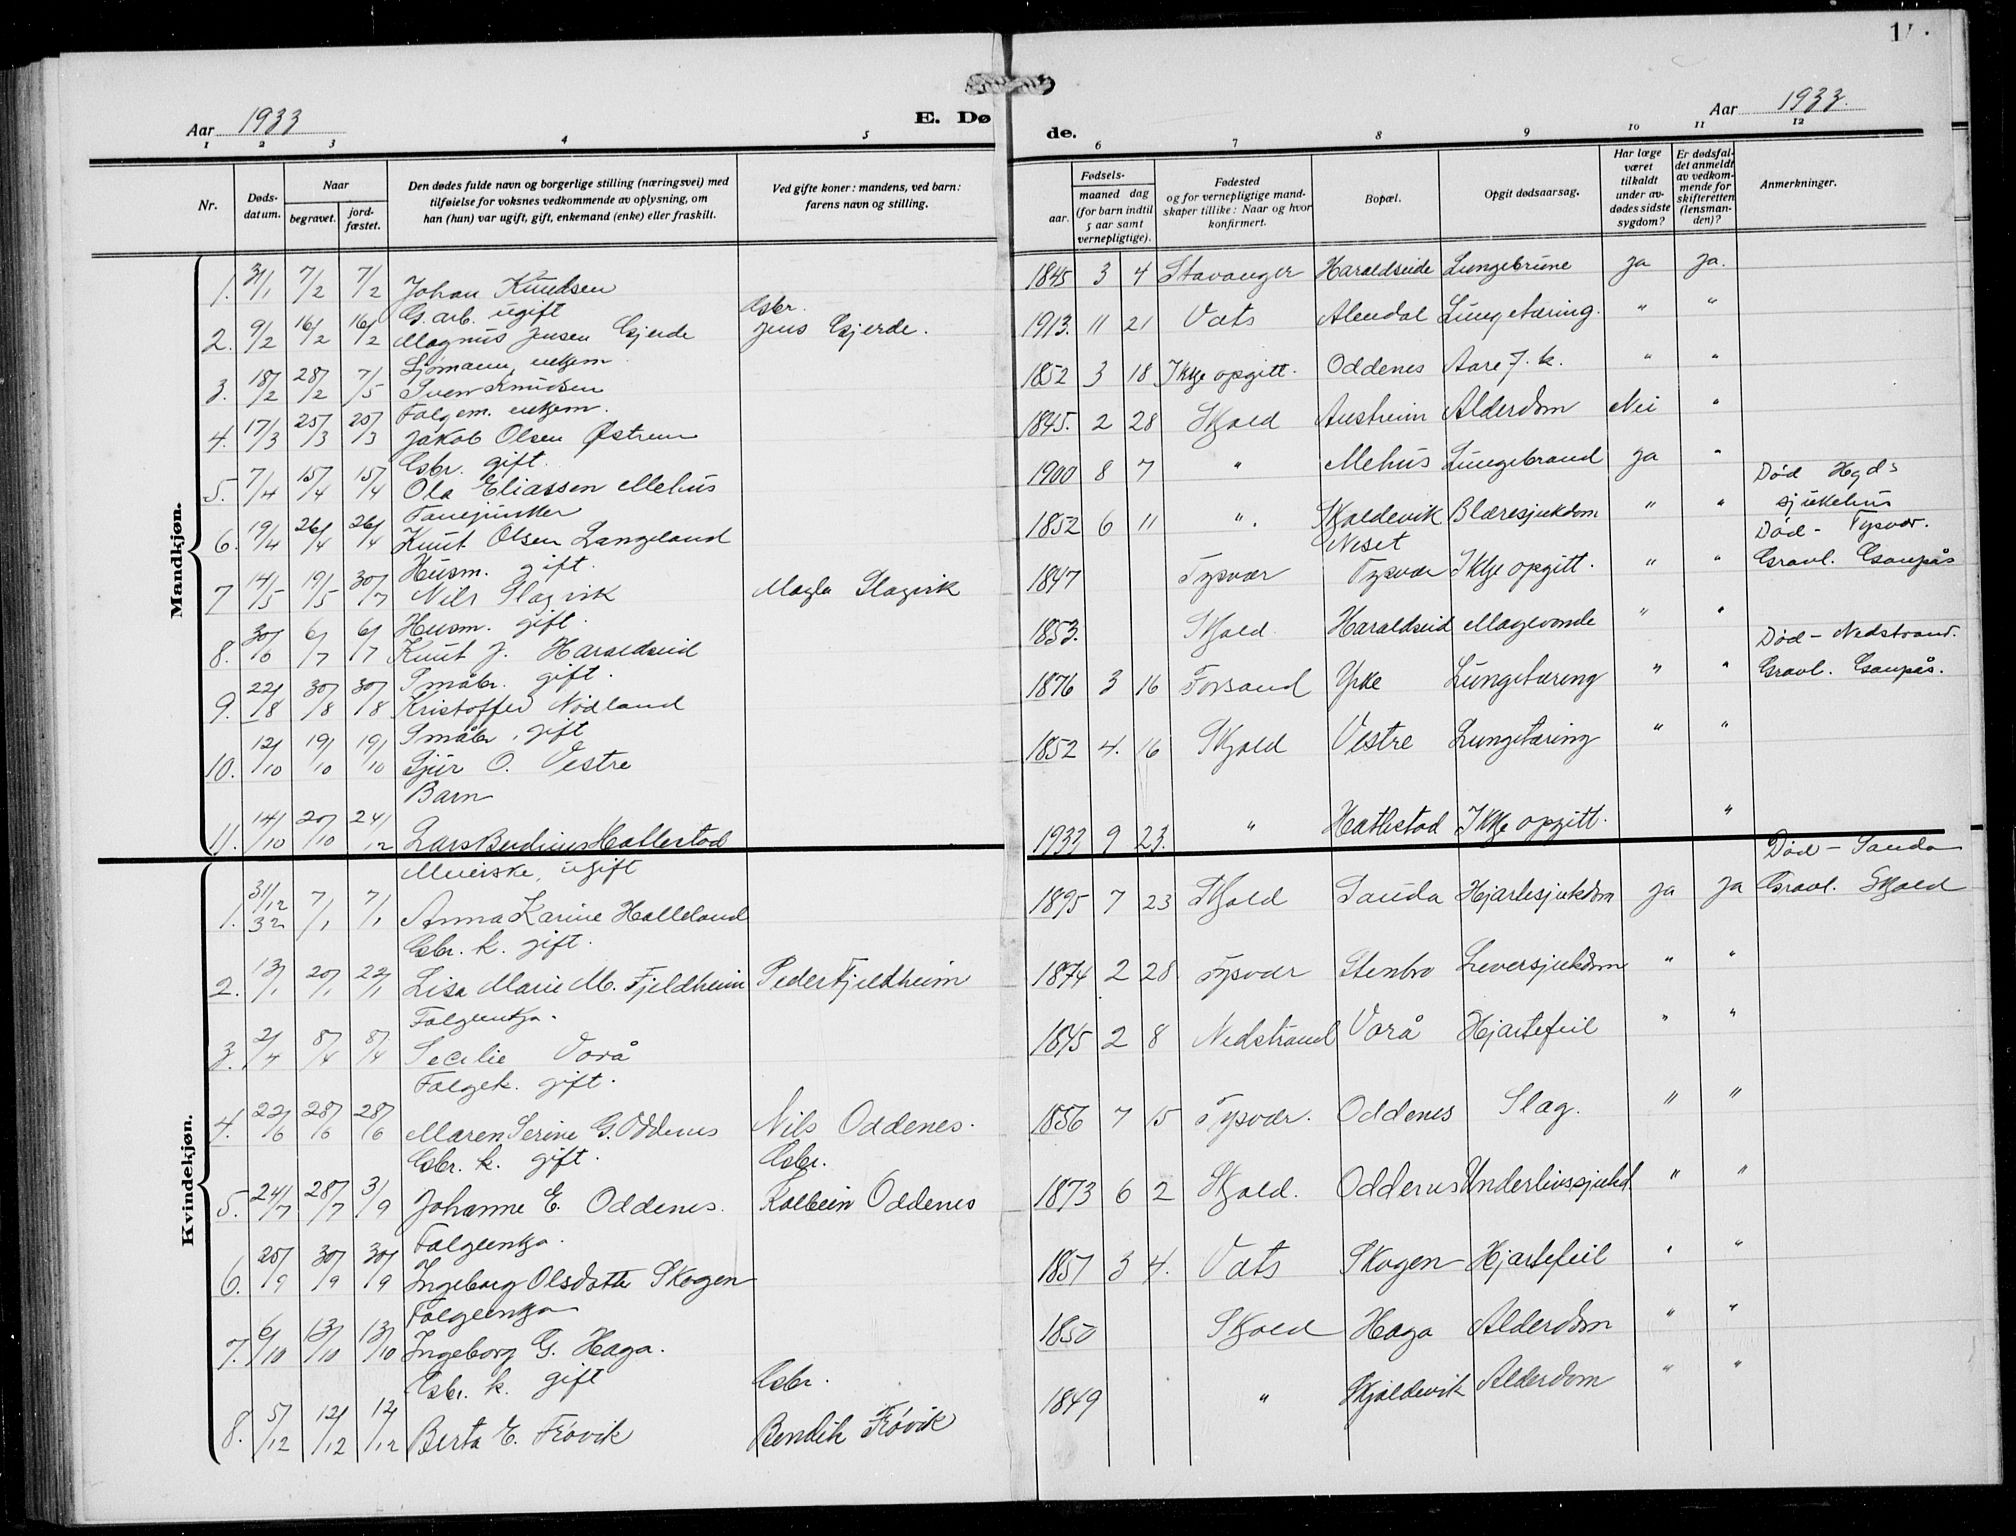 Aar 1933
E. Dø
de.
Aar 1933.
1 2 3 4 5 6 7 8 9 10 11 12
Nr.
Døds-datum.
Naar
begravet.
jord-fæstet.
Den dødes fulde navn og borgerlige stilling (næringsvei) med tilføielse for voksnes vedkommende av oplysning, om han (hun) var ugift, gift, enkemand (enke) eller fraskilt.
Ved gifte koner: mandens, ved barn: farens navn og stilling.
Fødsels-
aar.
maaned dag (for barn indtil 5 aar samt vernepligtige).
Fødested og for vernepligtige mandskaper tillike: Naar og hvor konfirmert.
Bopæl.
Opgit dødsaarsag.
Har læge været tilkaldt under avdødes sidste sygdom?
Er dødsfaldet anmeldt av vedkommende for skifteretten (lensmanden)?
Anmerkninger.
Mandkjøn.
1. 31/1 7/2 7/2 Johan Knudsen 1845 3 4 Stavanger Haraldseide Lungebrune ja ja.
G. arb. ugift Gbr.
2. 9/2 16/2 16/2 Magnus Jensen Gjerde Jens Gjerde. 1913. 11 21 Vats Alendal Lungetæring. " "
Sjømann, enkem.
3. 18/2 28/2 7/5 Sven Knudsen 1852 3 18 Ikkje opgitt. Oddenes Aare f. k. " "
Folgem. enkem.
4. 17/3 25/3 25/3 Jakob Olsen Østrem 1845. 2 28 Skjold Austreim Alderdom Nei "
Gbr. gift.
5. 7/4 15/4 15/4 Ola Eliassen Mehus 1900 8 7 " Mehus Lungebrand ja " Død Hgds sjukehus
6. 19/4 26/4 26/4 Knut Olsen Langeland 1852 6 11 ". Skjoldevik Blæresjukdom " "
Neset Død - Tysvær.
Husm. gift.
7 14/5 19/5 30/7 Nils Slagvik Magla Slagvik 1847 Tysvær Tysvær Ikkje opgitt. " " Gravl. Gaupås
Husm. gift.
8. 30/6 6/7 6/7 Knut J. Haraldseid 1853. Skjold. Haraldseid Magevonde " "
Død - Nedstrand.
Småbr. gift.
9. 22/8 30/8 30/8 Kristoffer Nødland 1876 3 16 Forsand Yrke Lungetæring " " Gravl. Gaupås.
Småbr. gift
10. 12/10 19/10 19/10 Sjur O. Vestre 1852 4. 16 Skjold Vestre Lungetæring " "
Barn
11. 14/10 20/10 24/12 Lars Berdines Hatlestad 1932 9 23. " Hatlestad Ikkje opgitt. "
Kvindekjøn.
ugift Død - Sauda
1. 31/12 32 7/1 7/1 Anna Karine Halleland 1895 7 23 Skjold Sauda Hjartesjukdom ja ja Gravl. Skjold
Gbr. k. gift.
2. 13/1 20/1 22/1 Lisa Marie M. Fjeldheim Peder Fjeldheim 1874 2 28 Tysvær Stenbro Leversjukdom " "
Folgeenkja.
3. 2/4 8/4 8/4 Secilie Vorå 1845 2 8 Nedstrand Vorå Hjartefeil " "
Folgek. gift.
4. 22/6 28/6 28/6 Maren Serine G. Oddenes Nils Oddenes. 1856 7 15 Tysvær. Oddenes Slag. " "
Gbr. k. gift. Gbr.
5. 24/7 28/7 3/9 Johanne E. Oddenes. Kolbein Oddenes 1873 6 2 Skjold. Oddenes Underlivssjukd. " "
Folgeenkja.
6. 25/9 30/9 30/9 Ingeborg Olsdotter Skogen 1857 3 4. Vats Skogen Hjartefeil " "
Folgeenkja
7. 6/10 13/10 13/10 Ingeborg G. Haga. 1850 Skjold Haga Alderdom " "
Gbr. k. gift Gbr.
8. 5/12 12/12 12/12 Berta E. Frøvik Bendik Frøvik 1849 " Skjoldevik Alderdom " "